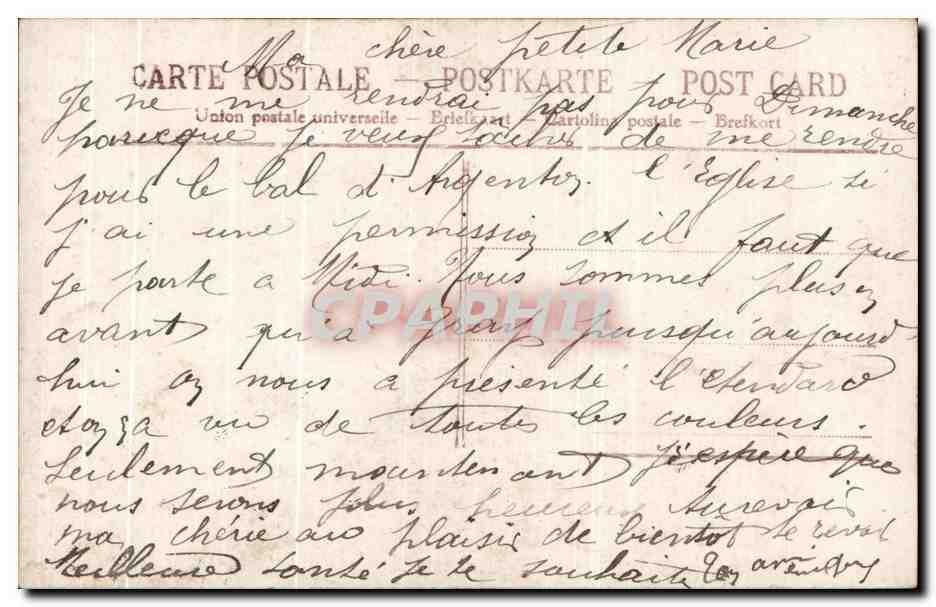 Ma chère petite Marie
CARTE POSTALE — POSTKARTE POST CARD
Je ne me rendrai pas pour Dimanche
Union postale universelle — Briefkaart — Cartolina postale — Brefkort
parceque je veux tacher de me rendre
pour le bal d'Argenton. l'Eglise si
j'ai une permission et il faut que
je parte a Midi. Nous sommes plus en
CPAPHIL
avant qu'a Gray puisqu'aujourd-
hui on nous a présenté l'étendard
et on en a vu de toutes les couleurs.
Seulement maintenant j'espère que
nous serons plus heureux Aurevoir
ma chérie au plaisir de bientôt te revoir
Meilleure santé je te souhaite